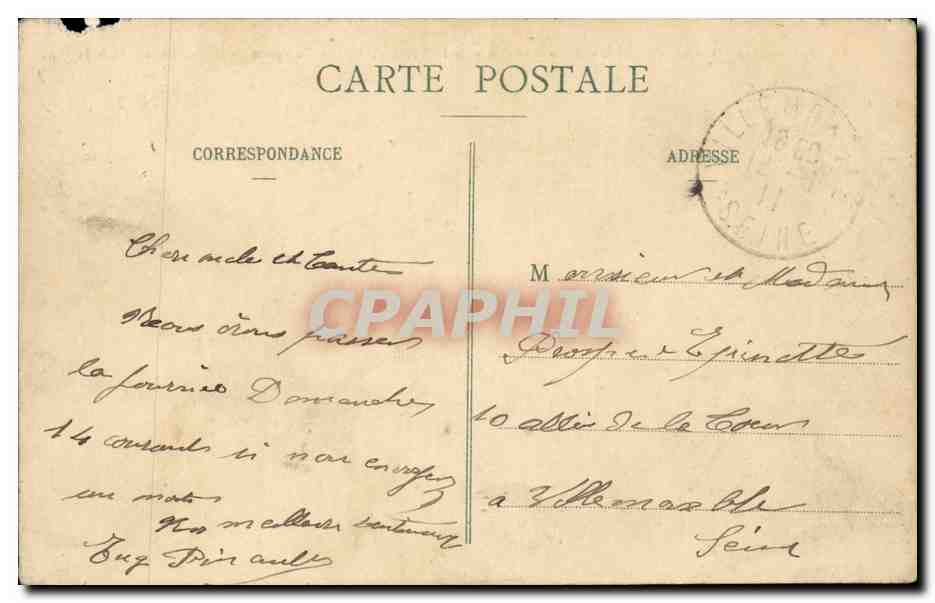 CARTE POSTALE
CORRESPONDANCE
ADRESSE
SEINE
11
Cher oncle et tante
Nous irons passer
la journée Dimanche
14 courant si non envoyez
un mot
Nos meilleurs sentiments
Eug Pinault
Monsieur et Madame
Prosper Epinette
10 allée de la Tour
a Villemomble
Seine
CPAPHIL